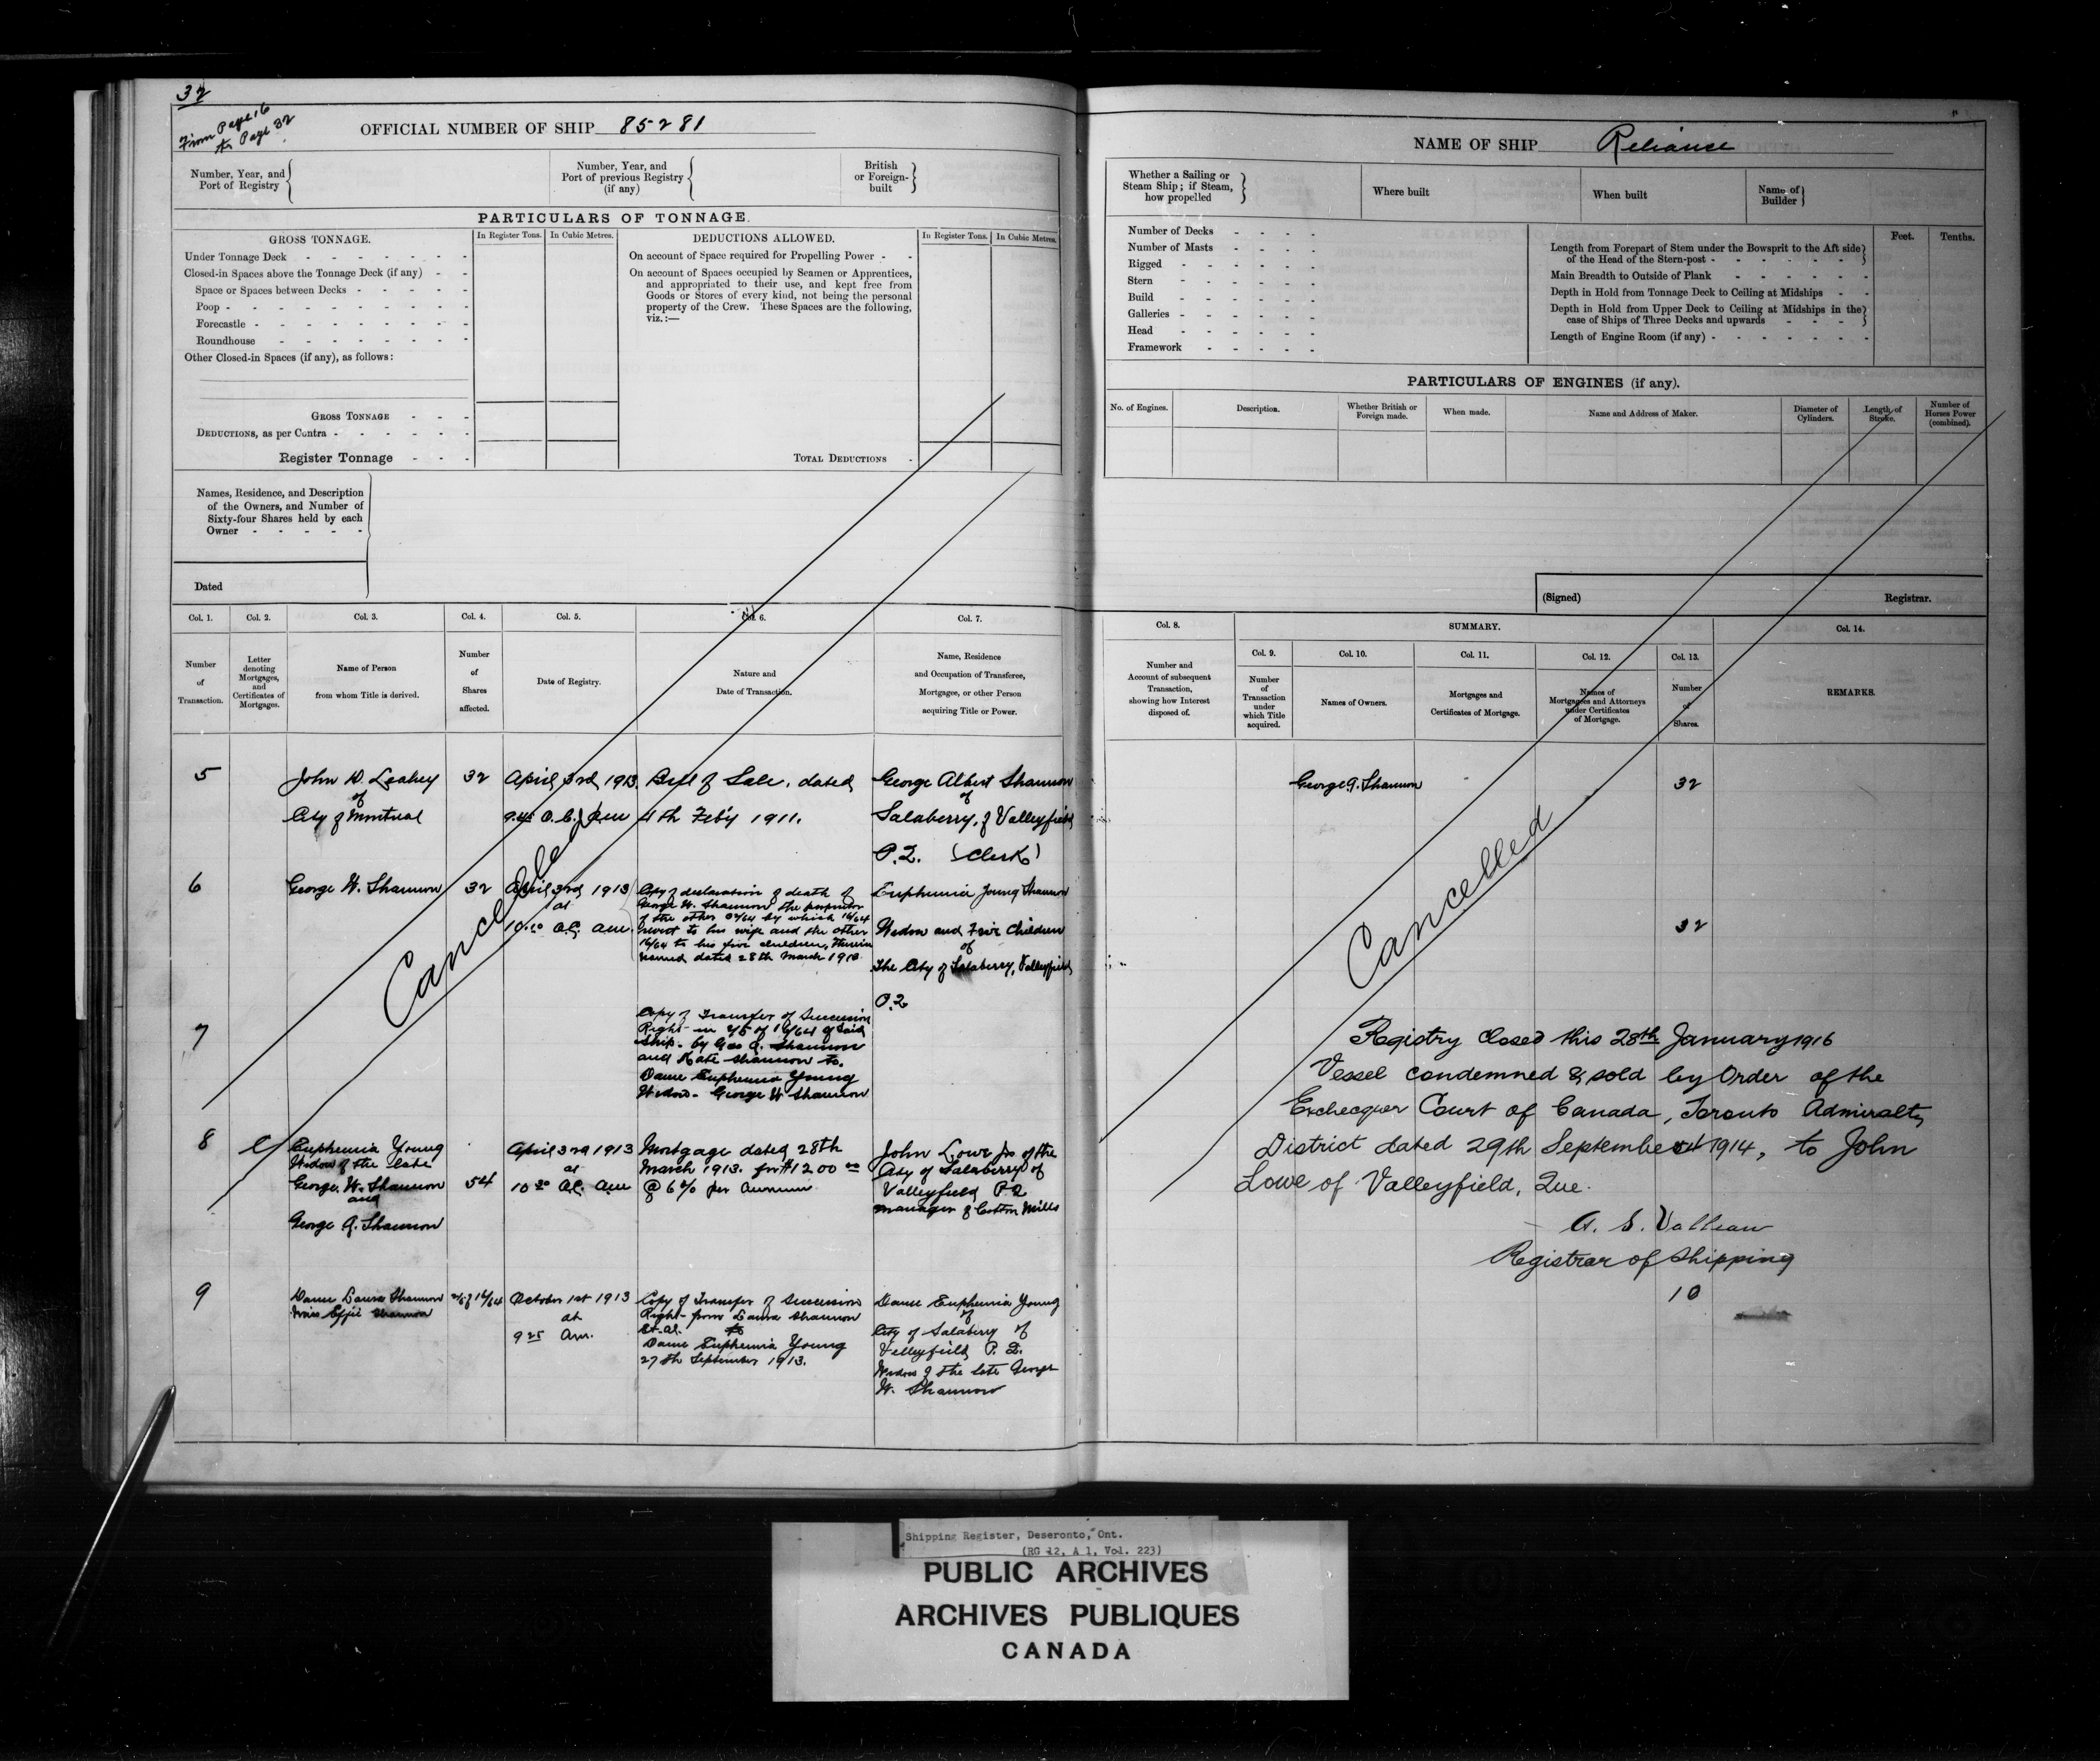 32
From Page 16
to Page 32
OFFICIAL NUMBER OF SHIP 85281
Number, Year, and
Port of Registry
Number, Year, and
Port of previous Registry
(if any)
British
or Foreign-
built
PARTICULARS OF TONNAGE.
GROSS TONNAGE.
In Register Tons.
In Cubic Metres.
DEDUCTIONS ALLOWED.
In Register Tons.
In Cubic Metres.
Under Tonnage Deck
Closed-in Spaces above the Tonnage Deck (if any)
Space or Spaces between Decks
Poop
Forecastle
Roundhouse
Other Closed-in Spaces (if any), as follows:
GROSS TONNAGE
DEDUCTIONS, as per Contra
Register Tonnage
On account of Space required for Propelling Power
On account of Spaces occupied by Seamen or Apprentices,
and appropriated to their use, and kept free from
Goods or Stores of every kind, not being the personal
property of the Crew. These Spaces are the following,
viz.:—
TOTAL DEDUCTIONS
Names, Residence, and Description
of the Owners, and Number of
Sixty-four Shares held by each
Owner
Dated
Col. 1.
Number
of
Transaction.
Col. 2.
Letter
denoting
Mortgages,
and
Certificates of
Mortgages.
Col. 3.
Name of Person
from whom Title is derived.
Col. 4.
Number
of
Shares
affected.
Col. 5.
Date of Registry.
Col. 6.
Nature and
Date of Transaction.
Col. 7.
Name, Residence
and Occupation of Transferee,
Mortgagee, or other Person
acquiring Title or Power.
5
John D. Leahey
of
City of Montreal
32
April 3rd 1913
Bill of Sale, dated
4th Feb'y 1911.
George Albert Shannon
of
Salaberry, of Valleyfield
P.Q. (Clerk)
6
George W. Shannon
32
April 3rd 1913
at
Copy of declaration of death of
George W. Shannon the proprietor
of the other 32/64 by which 16/64
revert to his wife and the other
16/64 to his five children, therein
named dated 28th March 1913
Euphemia Young Shannon
Widow and Five Children
of
The City of Salaberry, Valleyfield
P.Q
7
Copy of Transfer of Succession
Right in 2/5 of 16/64 of said
Ship. by Geo A. Shannon
and Kate Shannon to.
Dame Euphemia Young
Widow. George W Shannon
8
Euphemia Young
Widow of the late
George. W. Shannon
and
George A. Shannon
54
April 3rd 1913
at
Mortgage dated 28th
March 1913. for $1200 00
@ 6% per Annum
John Lowe Jr of the
City of Salaberry of
Valleyfield P.Q
manager of Cotton Mills
9
Dame Laura Shannon
Miss Effie Shannon
2/5 of 16/64
October 1st 1913
at
9 25 Am.
Copy of Transfer of Succession
Right from Laura Shannon
Et. al. to
Dame Euphemia Young
27th September 1913.
Dame Euphemia Young
of
City of Salaberry of
Valleyfield, P. Q.
Widow of the late George
W. Shannon
Cancelled
NAME OF SHIP Reliance
Whether a Sailing or
Steam Ship; if Steam,
how propelled
Where built
When built
Name of
Builder
Number of Decks
Number of Masts
Rigged
Stern
Build
Galleries
Head
Framework
Feet.
Tenths.
Length from Forepart of Stem under the Bowsprit to the Aft side
of the Head of the Stern-post
Main Breadth to Outside of Plank
Depth in Hold from Tonnage Deck to Ceiling at Midships
Depth in Hold from Upper Deck to Ceiling at Midships in the
case of Ships of Three Decks and upwards
Length of Engine Room (if any)
PARTICULARS OF ENGINES (if any).
No. of Engines.
Description.
Whether British or
Foreign made.
When made.
Name and Address of Maker.
Diameter of
Cylinders.
Length of
Stroke.
Number of
Horses Power
(combined).
(Signed)
Registrar.
Col. 8.
Number and
Account of subsequent
Transaction,
showing how Interest
disposed of.
SUMMARY.
Col. 9.
Number
of
Transaction
under
which Title
acquired.
Col. 10.
Names of Owners.
Col. 11.
Mortgages and
Certificates of Mortgage.
Col. 12.
Names of
Mortgagees and Attorneys
under Certificates
of Mortgage.
Col. 13.
Number
of
Shares.
Col. 14.
REMARKS.
George A. Shannon
32
32
Cancelled
Registry Closed this 28th January 1916
Vessel condemned & sold by Order of the
Exchequer Court of Canada, Toronto Admiralty
District dated 29th September 1914, to John
Lowe of Valleyfield, Que.
A. S. Valleau
Registrar of Shipping
10
Shipping Register, Deseronto, Ont.
(RG 12, A 1, Vol. 223)
PUBLIC ARCHIVES
ARCHIVES PUBLIQUES
CANADA